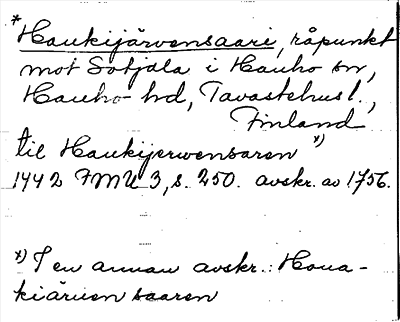 *Haukijärvensaari, råpunkt
mot Sotjala i Hauho sn,
Hauho hd, Tavastehus l.,
Finland
til Haukijerwensaren x)
1442 FMU 3, s. 250. avskr. av 1756.
x) I en annan avskr.: Haua-
kiäruensaaren